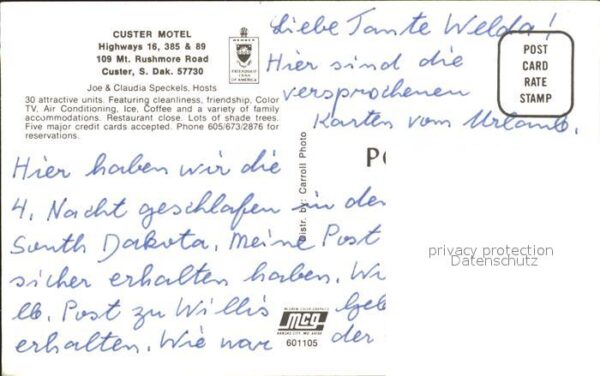 CUSTER MOTEL
Highways 16, 385 & 89
109 Mt. Rushmore Road
Custer, S. Dak. 57730
Joe & Claudia Speckels, Hosts
30 attractive units. Featuring cleanliness, friendship, Color
TV, Air Conditioning, Ice, Coffee and a variety of family
accommodations. Restaurant close. Lots of shade trees.
Five major credit cards accepted. Phone 605/673/2876 for
reservations.
MEMBER
FRIENDSHIP
INNS
OF AMERICA
Liebe Tante Welda!
Hier sind die
versprochenen
Karten vom Urlaub.
POST
CARD
RATE
STAMP
Hier haben wir die
4. Nacht geschlafen in
South Dakota. Meine Post
sicher erhalten haben.
Post zu Willis
erhalten. Wie war der
Distr. by: Carroll Photo
mcg
KANSAS CITY, MO.
601105
privacy protection
Datenschutz